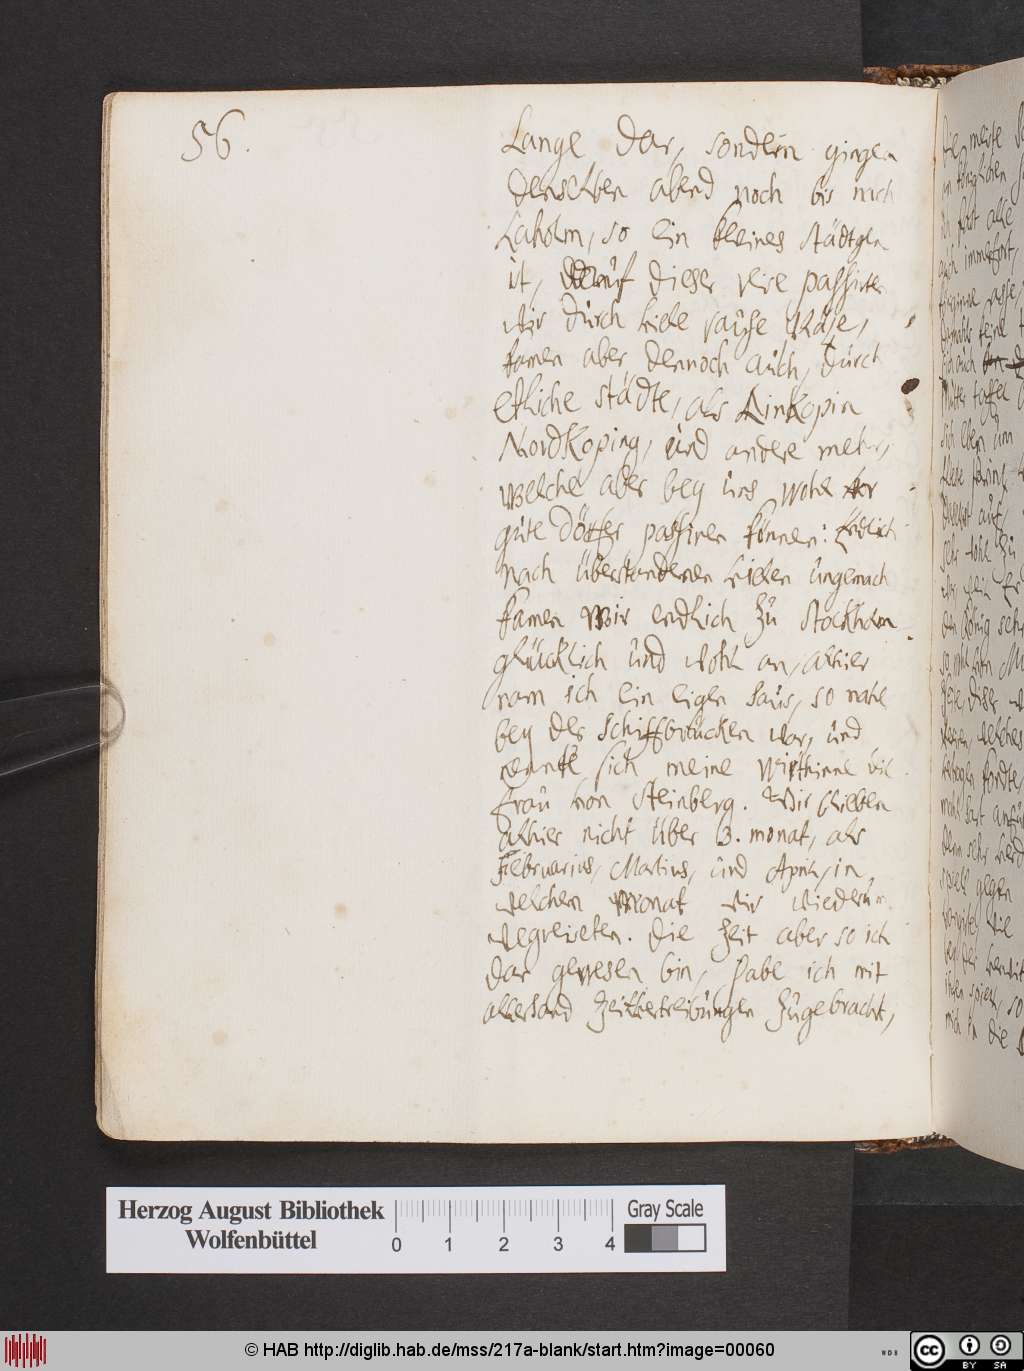 56.
Lange dar, sondern gingen
denselben abend noch bis nach
Laholm, so ein kleines städtgen
ist, auf dieser reise passirten
wir durch viele rauhe Wege,
kamen aber dennoch auch, durch
etliche städte, als Linkopin
Nordkoping, und andere mehr,
welche aber bey uns wohl vor
gute Dörfer passiren können: Endlich
nach überstandenen vielen ungemach
kamen wir endlich zu Stockholm
glücklich und wohl an, alhier
nam ich ein eigen haus, so nahe
bey der schiffbrücken war, und
nente sich meine wirthinne die
frau von Steinberg. Wir blieben
alhier nicht über 3. monat, als
Februarius, Martius, und April, in
welchen monat wir wiederum
wegreiseten. die Zeit aber so ich
dar gewesen bin, habe ich mit
allerhand Zeitvertreibungen zugebracht,
Herzog August Bibliothek
Wolfenbüttel
0 1 2 3 4
Gray Scale
© HAB http://diglib.hab.de/mss/217a-blank/start.htm?image=00060
WDB
CC BY SA